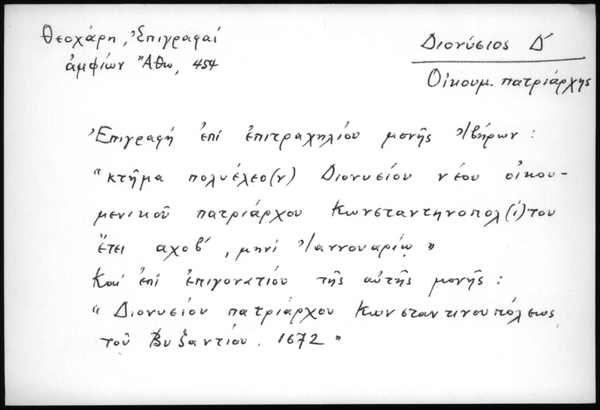 Θεοχάρη, Ἐπιγραφαί
ἀμφίων Ἄθω, 454
Διονύσιος Δ´
Οἰκουμ. πατριάρχης
Ἐπιγραφή ἐπί ἐπιτραχηλίου μονῆς Ἰβήρων:
"κτῆμα πολυέλεο(ν) Διονυσίου νέου οἰκου-
μενικοῦ πατριάρχου Κωνσταντηνοπολ(ί)του
ἔτει αχοβ´, μηνί Ἰαννουαρίῳ"
Καί ἐπί ἐπιγονατίου τῆς αὐτῆς μονῆς:
"Διονυσίου πατριάρχου Κωνσταντινουπόλεως
τοῦ Βυζαντίου. 1672"